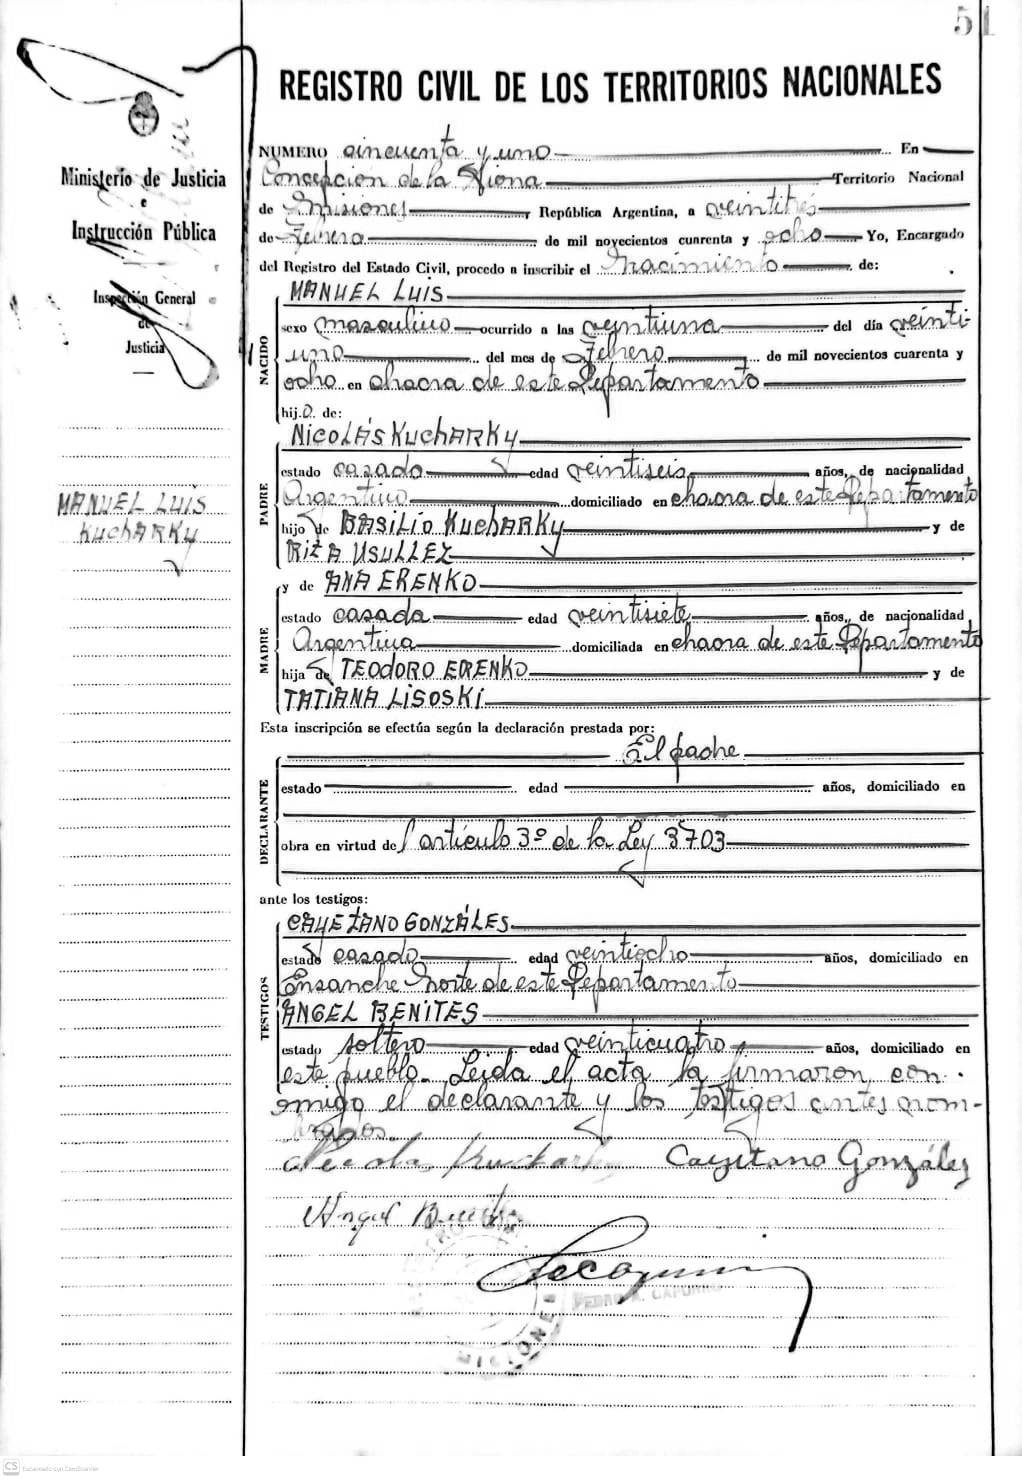 51
REGISTRO CIVIL DE LOS TERRITORIOS NACIONALES
Ministerio de Justicia
e
Instrucción Pública
Inspección General
de
Justicia
MANUEL LUIS
KUCHARKY
NUMERO cincuenta y uno En
Concepcion de la Sierra Territorio Nacional
de Misiones, República Argentina, a veintitrés
de Febrero de mil novecientos cuarenta y ocho Yo, Encargado
del Registro del Estado Civil, procedo a inscribir el Nacimiento de:
NACIDO
MANUEL LUIS
sexo masculino ocurrido a las veintiuna del día veinti-
uno del mes de Febrero de mil novecientos cuarenta y
ocho en chacra de este Departamento
hijo de:
PADRE
NICOLÁS KUCHARKY
estado casado edad veintiseis años, de nacionalidad
Argentino domiciliado en chacra de este Departamento
hijo de BASILIO KUCHARKY y de
RITA USULLEZ
MADRE
y de ANA ERENKO
estado casada edad veintisiete años, de nacionalidad
Argentina domiciliada en chacra de este Departamento
hija de TEODORO ERENKO y de
TATIANA LISOSKI
Esta inscripción se efectúa según la declaración prestada por:
DECLARANTE
El padre
estado edad años, domiciliado en
obra en virtud del artículo 3º de la Ley 3703
ante los testigos:
TESTIGOS
CAYETANO GONZÁLES
estado casado edad veintiocho años, domiciliado en
Ensanche Norte de este Departamento
ANGEL BENITES
estado soltero edad veinticuatro años, domiciliado en
este pueblo. Leida el acta la firmaron con-
migo el declarante y los testigos antes nom-
brados.
Nicolas Kucharky Cayetano González
Angel Benites
PEDRO
MISIONES
CS Escaneado con CamScanner